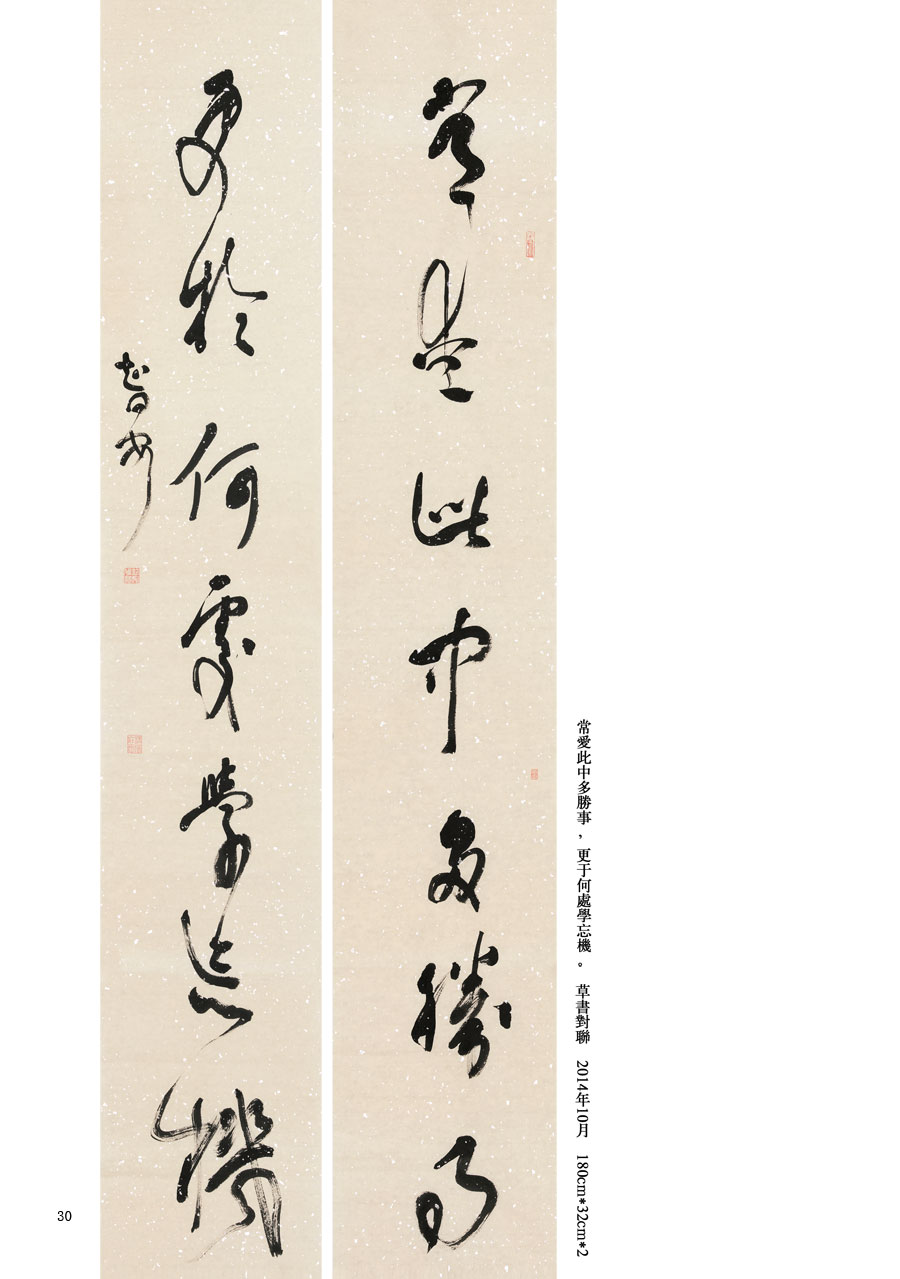 常愛此中多勝事
更於何處學忘機
智安
常愛此中多勝事，更于何處學忘機。　草書對聯　2014年10月　180cm*32cm*2
30